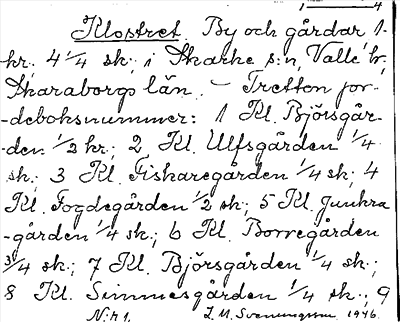 1 4
Klostret. By och gårdar 1-
kr. 4 1/4 sk. i Skarke s:n, Valle hr,
Skaraborgs län. — Tretton jor-
-deboksnummer: 1 Kl. Björsgår-
-den 1/2 kr.; 2 Kl. Ulfsgården 1/4
sk.; 3 Kl. Fiskaregården 1/4 sk; 4
Kl. Fogdegården 1/2 sk.; 5 Kl. Junkra
-gården 1/4 sk.; 6 Kl. Borregården
3/4 sk.; 7 Kl. Björsgården 1/4 sk.;
8 Kl. Simmesgården 1/4 sk.; 9
N:r 1. L. M. Svenungsson 1946.